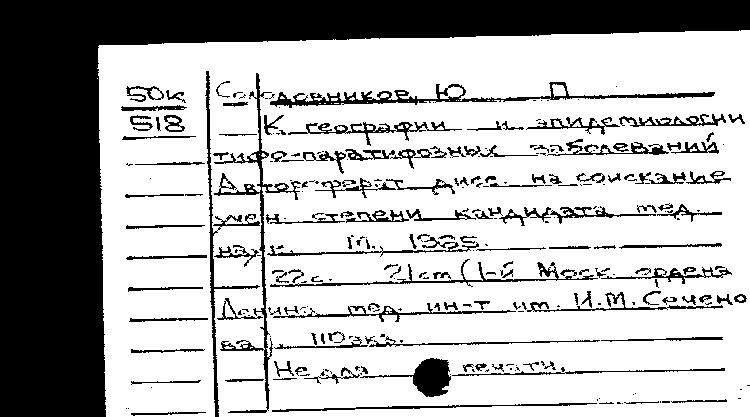 50к Солодовников, Ю П
518 К географии и эпидемиологии
тифо-паратифозных заболеваний
Автореферат дисс. на соискание
учен. степени кандидата мед.
наук. М., 1965.
22с. 21cm (1-й Моск ордена
Ленина мед. ин-т им. И.М. Сечено
ва). 110экз.
Не для печати.